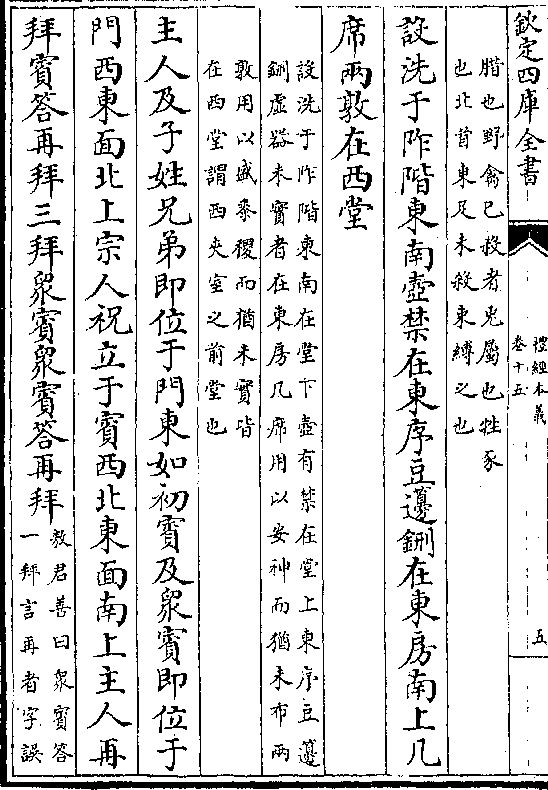 欽定四庫全書
禮經本義
卷十五
五
腊也野禽已殺者兎屬也牲豕
也北首東足未殺束縛之也
設洗于阼階東南壺禁在東序豆籩鉶在東房南上几
席兩敦在西堂
設洗于阼階東南在堂下壺有禁在堂上東序豆籩
鉶虛器未實者在東房几席用以安神而猶未布兩
敦用以盛黍稷而猶未實皆
在西堂謂西夾室之前堂也
主人及子姓兄弟即位于門東如初賓及衆賓即位于
門西東面北上宗人祝立于賓西北東面南上主人再
拜賓答再拜三拜衆賓衆賓答再拜
敖君善曰衆賓答
一拜言再者字誤